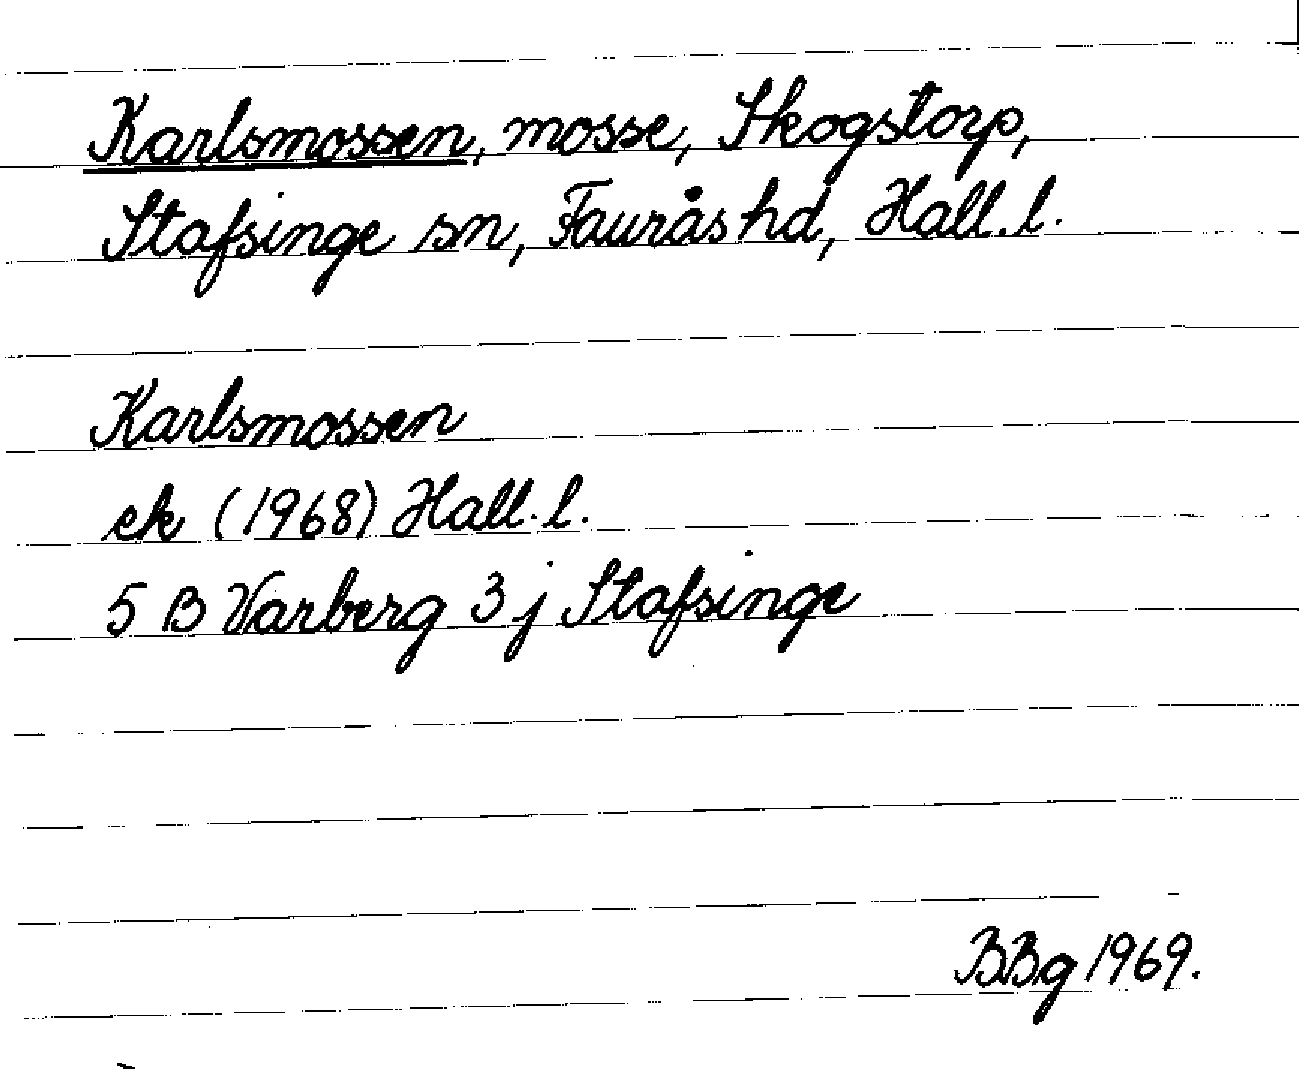 Karlsmossen, mosse, Skogstorp,
Stafsinge sn, Faurås hd, Hall. l.
Karlsmossen
ek (1968) Hall. l.
5 B Varberg 3 j Stafsinge
BBg 1969.